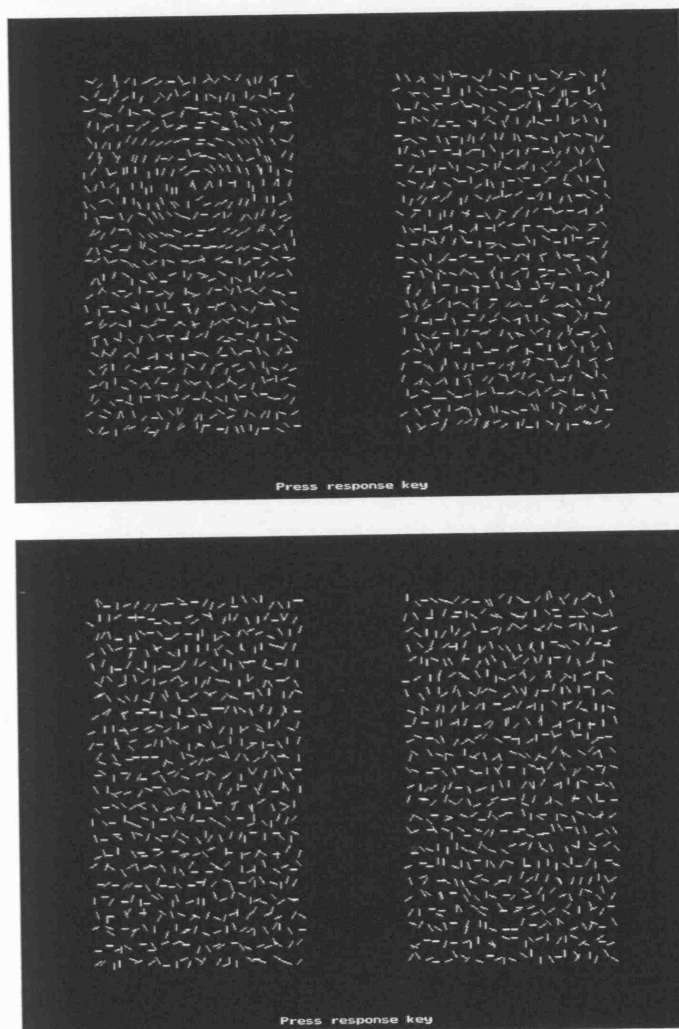 Press response key
Press response key